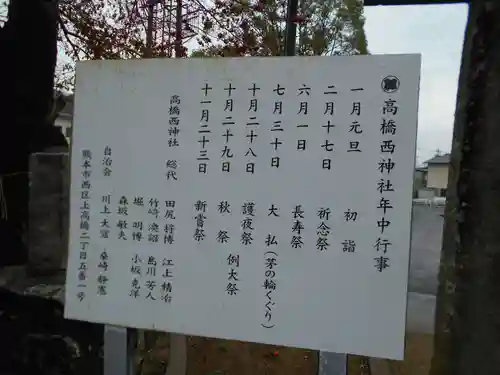 高橋西神社年中行事
一月元旦 初詣
二月十七日 祈念祭
六月一日 長寿祭
七月三十日 大払(茅の輪くぐり)
十月二十八日 護夜祭
十月二十九日 秋祭 例大祭
十一月二十三日 新嘗祭
高橋西神社 総代
田尻 将博 江上 精治
竹崎 凌韶 島川 芳人
堀 明博 小坂 克洋
森坂 敏夫
自治会 川上 大宣 桑崎 静憲
熊本市西区上高橋二丁目五番一